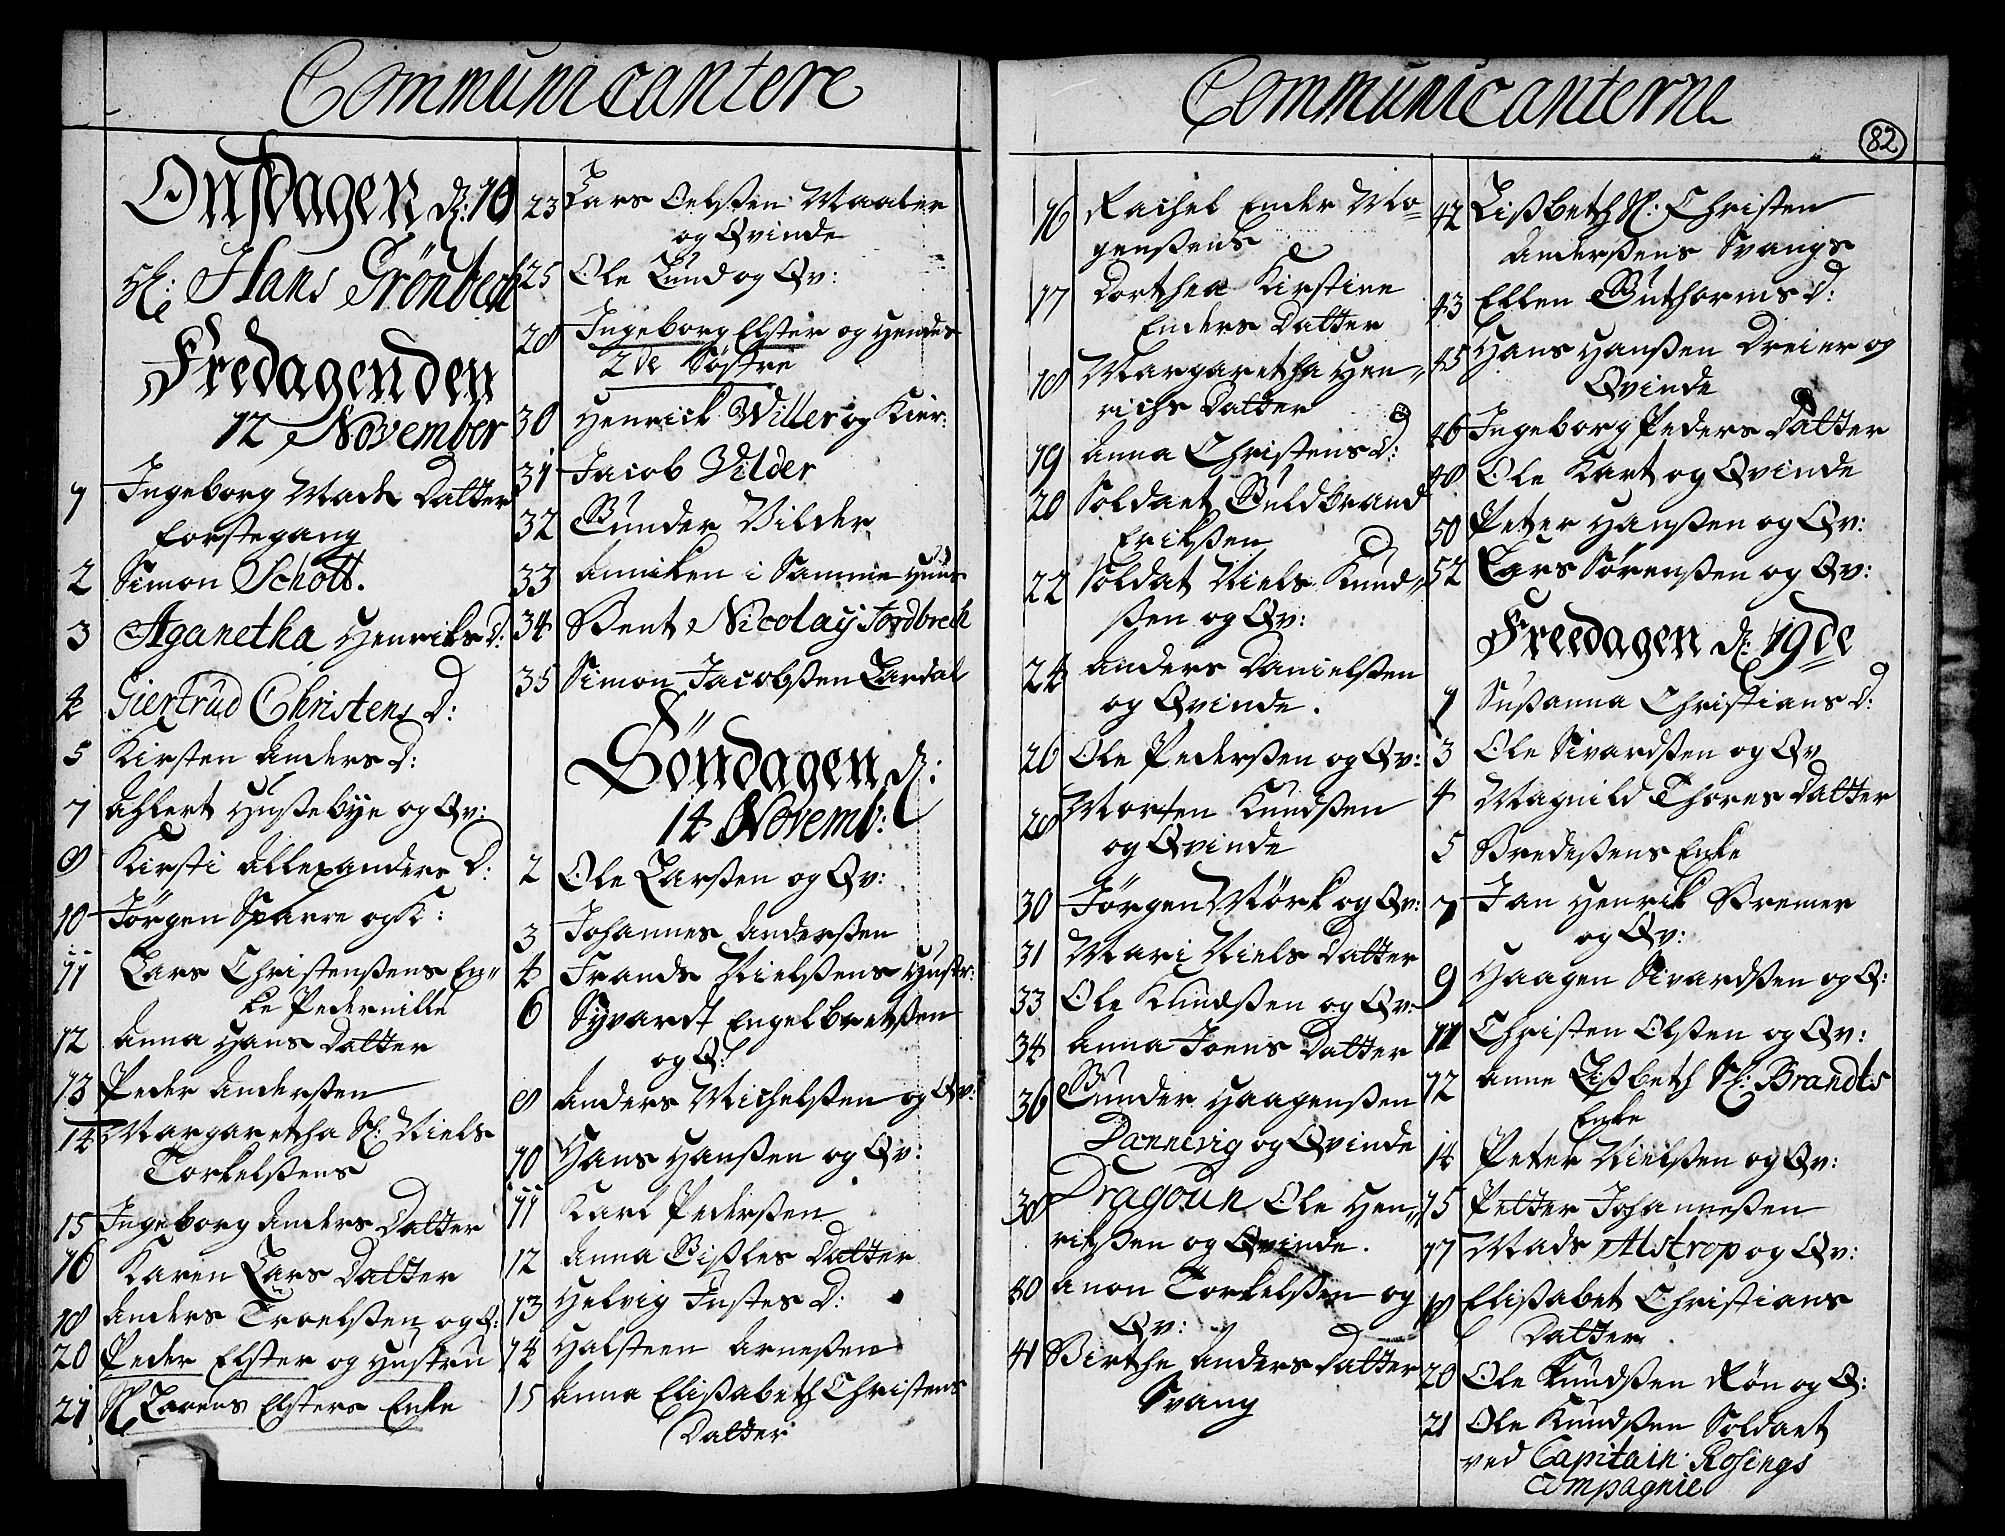 Communicantere
Onsdagen d: 10
Sl: Hans Grönbech
Fredagen den
12 November
1 Ingeborg Mads Datter
forstegang
2 Simon Schott.
3 Aganetha Henriks D:
4 Giertrud Christens D:
5 Kirsten Anders D:
7 Ahlert Hussebye og Qv:
9 Kirsti Allexanders D:
10 Jörgen Sparre og K:
11 Lars Christenssens En„
ke Pedernille
12 Anna Hans Datter
13 Peder Anderssen
14 Margaretha Sl: Niels
Torkelssens
15 Ingeborg Anders Datter
16 Karen Lars Datter
18 Anders Troelssen og Q:
20 Peder Elster og Hustru
21 Sl Lorens Elsters Enke
23 Lars Oelssen Maaler
og Qvinde
25 Ole Lund og Qv:
28 Ingeborg Elster og Hendes
2de Søstre
30 Henrick Willer og Kier:
31 Jacob Vilder
32 Gunder Vilder
33 Anniken i Samme Huus
34 Bent Nicolay Fordbrech
35 Simon Jacobssen Lardal
Söndagen d:
14 Novemb:
2 Ole Larssen og Qv:
3 Johannes Anderssen
4 Frands Nielssens Hustr:
6 Syvardt Engelbretssen
og Q:
8 Anders Michelssen og Qv:
10 Hans Hanssen og Qv:
11 Karl Pederssen
12 Anna Nissles Datter
13 Helvig Justes D:
14 Halsteen Arnessen
15 Anna Elissabeth Christens
Datter
Communicanterne
82
16 Rachel Ender Mo=
genssens
17 Dorthea Kirstine
Enders Datter
18 Margaretha Hen„
richs Datter
19 Anna Christens D:
20 Soldaet Guldbrand
Erikssen
22 Soldat Niels Knud„
ssen og Qv:
24 Anders Danielssen
og Qvinde.
26 Ole Pederssen og Qv:
28 Morten Knudssen
og Qvinde
30 Jörgen Mörk og Qv:
31 Mari Niels Datter
33 Ole Knudssen og Qv:
34 Anna Joens Datter
36 Gunder Haagenssen
Dannevig og Qvinde
38 Dragoun Ole Hen„
rikssen og Qvinde.
40 Anon Torkelssen og
Qv:
41 Birthe Anders Datter
Svang
42 Lissbeth Sl: Christen
Anderssens Svangs
43 Ellen Guthorms D:
45 Hans Hanssen Dreier og
Qvinde
46 Ingeborg Peders Datter
48 Ole Kart og Qvinde
50 Peter Hanssen og Qv:
52 Lars Sörenssen og Qv:
Freedagen d: 19de
1 Sussanna Christians D:
3 Ole Sivardssen og Qv
4 Magnild Thores Datter
5 Bredessens Enke
7 Jan Henrik Bremer
og Qv:
9 Haagen Sivardssen og Q:
11 Christen Olssen og Qv:
12 Anne Lissbeth Sl: Brandts
Enke
14 Peter Nielssen og Qv:
15 Petter Johannessen
17 Mads Alstrop og Qv:
18 Elissabet Christians
Datter
20 Ole Knudssen Røn og Q:
21 Ole Knudssen Soldaet
ved Capitain Rosings
Compagnie